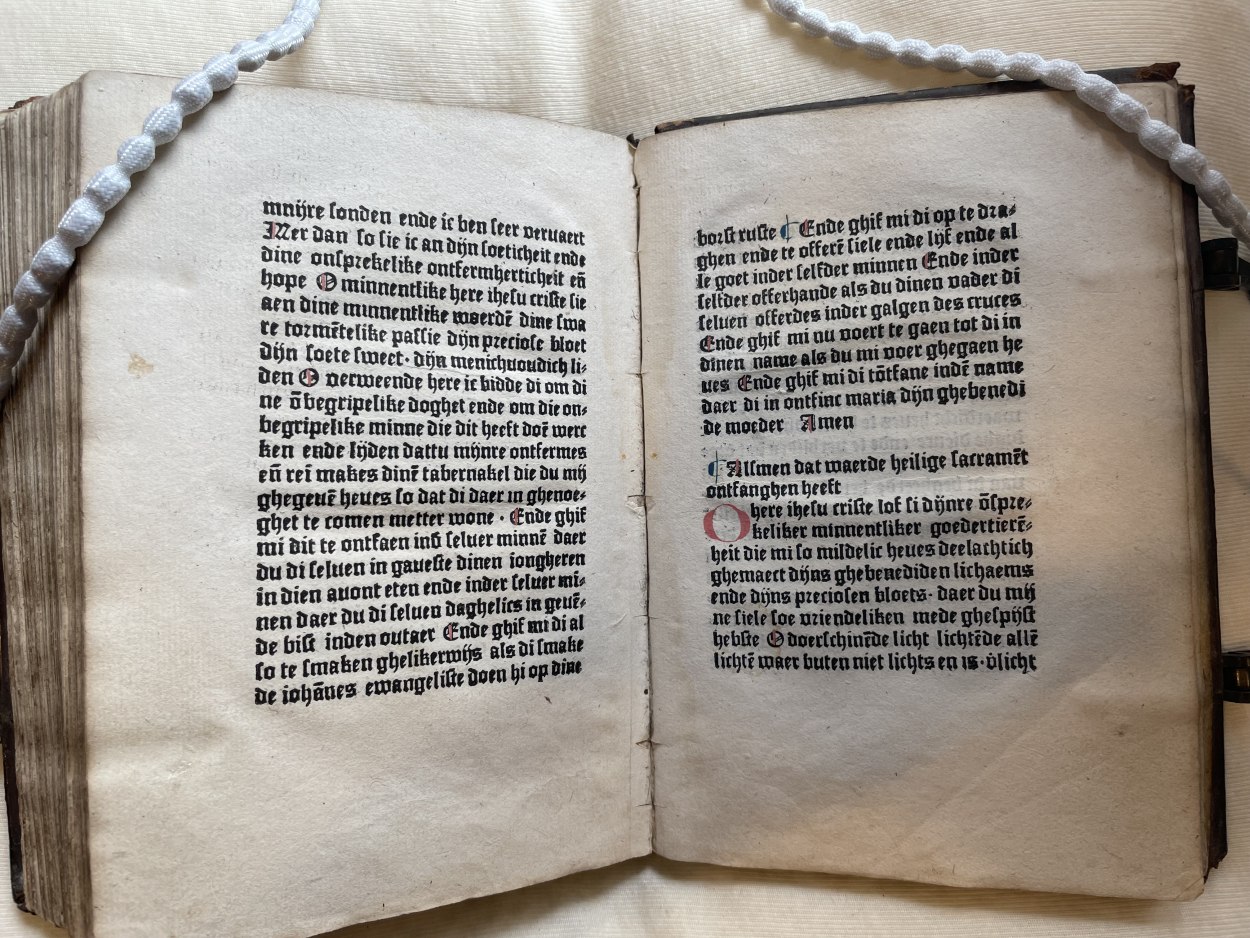 mnijre sonden ende ic ben seer veruaert
Mer dan so sie ic an dijn soeticheit ende
dine onsprekelike ontfermherticheit en̄
hope O minnentlike here ihesu criste sie
aen dine minnentlike woerdē dine swa
re tormētelike passie dijn preciose bloet
dijn soete sweet · dijn menichuoudich li⸗
den O verweende here ic bidde di om di
ne ōbegripelike doghet ende om die on⸗
begripelike minne die dit heeft doē werc
ken ende lijden dattu mijnre ontfermes
en̄ reī makes dinē tabernakel die du mij
ghegeuē heues so dat di daer in ghenoe⸗
ghet te comen metter wone · Ende ghif
mi dit te ontfaen inð seluer minnē daer
du di seluen in gaueste dinen iongheren
in dien auont eten ende inder seluer mi⸗
nen daer du di seluen daghelics in geuē⸗
de bist inden outaer Ende ghif mi di al
so te smaken ghelikerwijs als di smake
de iohānes ewangeliste doen hi op dine
borst ruste ¶ Ende ghif mi di op te dra⸗
ghen ende te offerē siele ende lijf ende al
le goet inder selfder minnen Ende inder
selfder offerhande als du dinen vader di
seluen offerdes inder galgen des cruces
Ende ghif mi nu voert te gaen tot di in
dinen name als du mi voer ghegaen he
ues Ende ghif mi di tōtfane indē name
daer di in ontfinc maria dijn ghebenedi
de moeder Amen
¶ Alsmen dat waerde heilige sacramēt
ontfanghen heeft
O here ihesu criste lof si dijnre ōspre⸗
keliker minnentliker goedertierē⸗
heit die mi so mildelic heues deelachtich
ghemaect dijns ghebenediden lichaems
ende dijns preciosen bloets · daer du mij
ne siele soe vriendeliken mede ghespijst
hebste O doerschinēde licht lichtēde allē
lichtē waer buten niet lichts en is · v̄licht